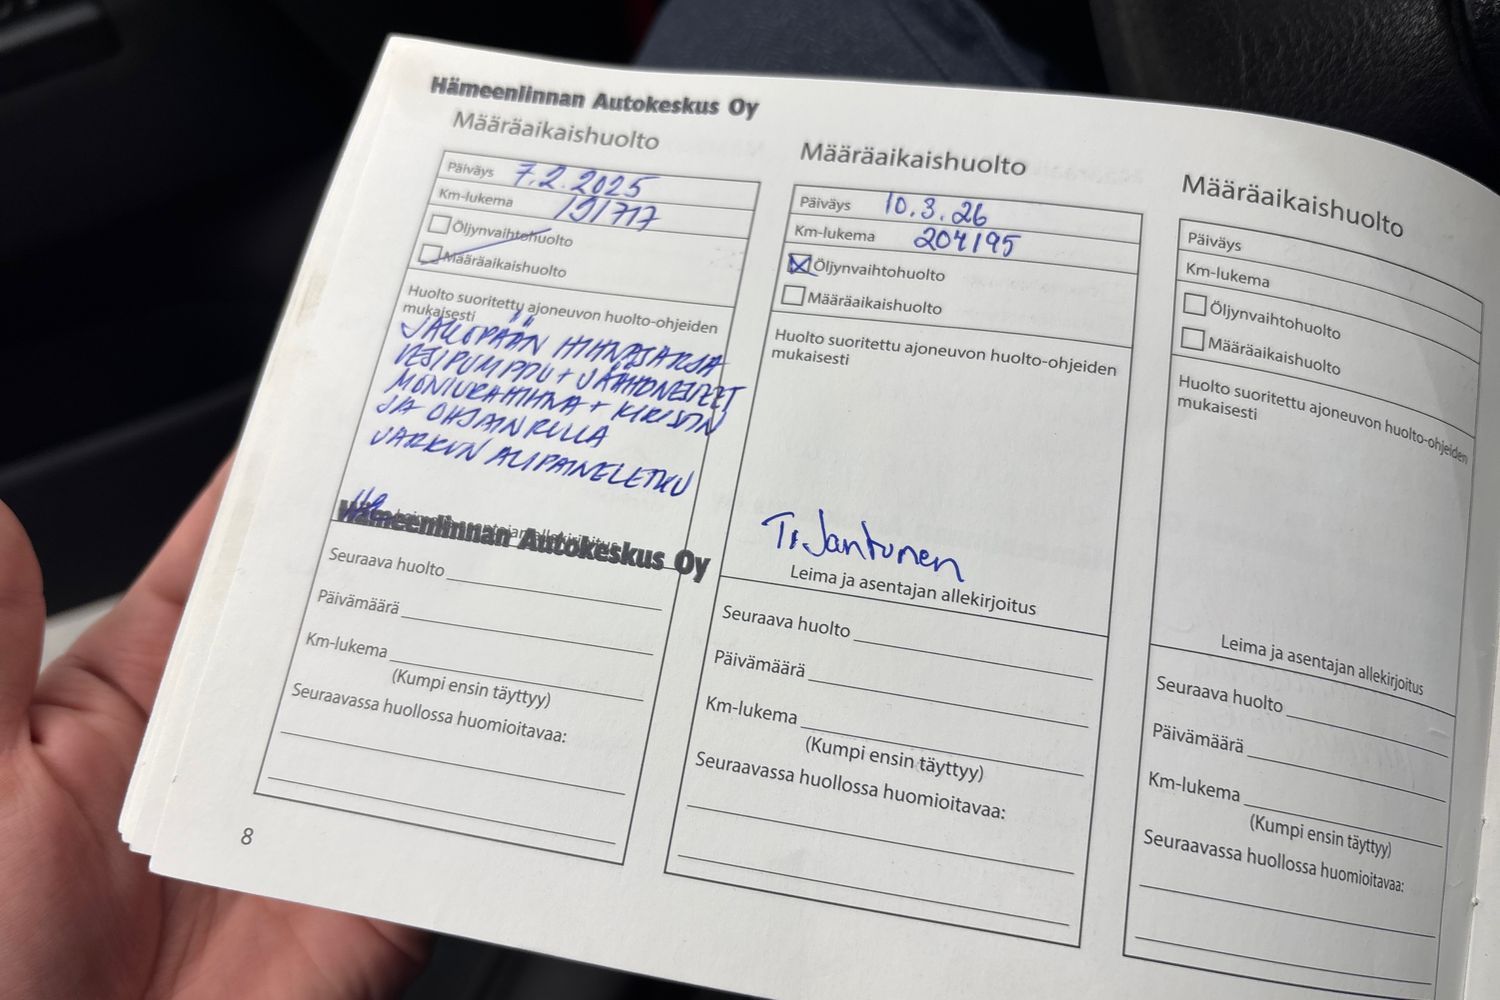 Hämeenlinnan Autokeskus Oy
Määräaikaishuolto
Päiväys 7.2.2025
Km-lukema 191717
Öljynvaihtohuolto
Määräaikaishuolto
Huolto suoritettu ajoneuvon huolto-ohjeiden
mukaisesti
JAKOPÄÄN HIHNASARJA
VESIPUMPPU + JÄÄHDNESTEET
MONIURAHIHNA + KIRISTIN
JA OHJAINRULLA
JARRUN ALIPAINELETKU
Hämeenlinnan Autokeskus Oy
asentajan allekirjoitus
Seuraava huolto
Päivämäärä
Km-lukema
(Kumpi ensin täyttyy)
Seuraavassa huollossa huomioitavaa:
8
Määräaikaishuolto
Päiväys 10.3.26
Km-lukema 204195
Öljynvaihtohuolto
Määräaikaishuolto
Huolto suoritettu ajoneuvon huolto-ohjeiden
mukaisesti
Jantunen
Leima ja asentajan allekirjoitus
Seuraava huolto
Päivämäärä
Km-lukema
(Kumpi ensin täyttyy)
Seuraavassa huollossa huomioitavaa:
Määräaikaishuolto
Päiväys
Km-lukema
Öljynvaihtohuolto
Määräaikaishuolto
Huolto suoritettu ajoneuvon huolto-ohjeiden
mukaisesti
Leima ja asentajan allekirjoitus
Seuraava huolto
Päivämäärä
Km-lukema
(Kumpi ensin täyttyy)
Seuraavassa huollossa huomioitavaa: